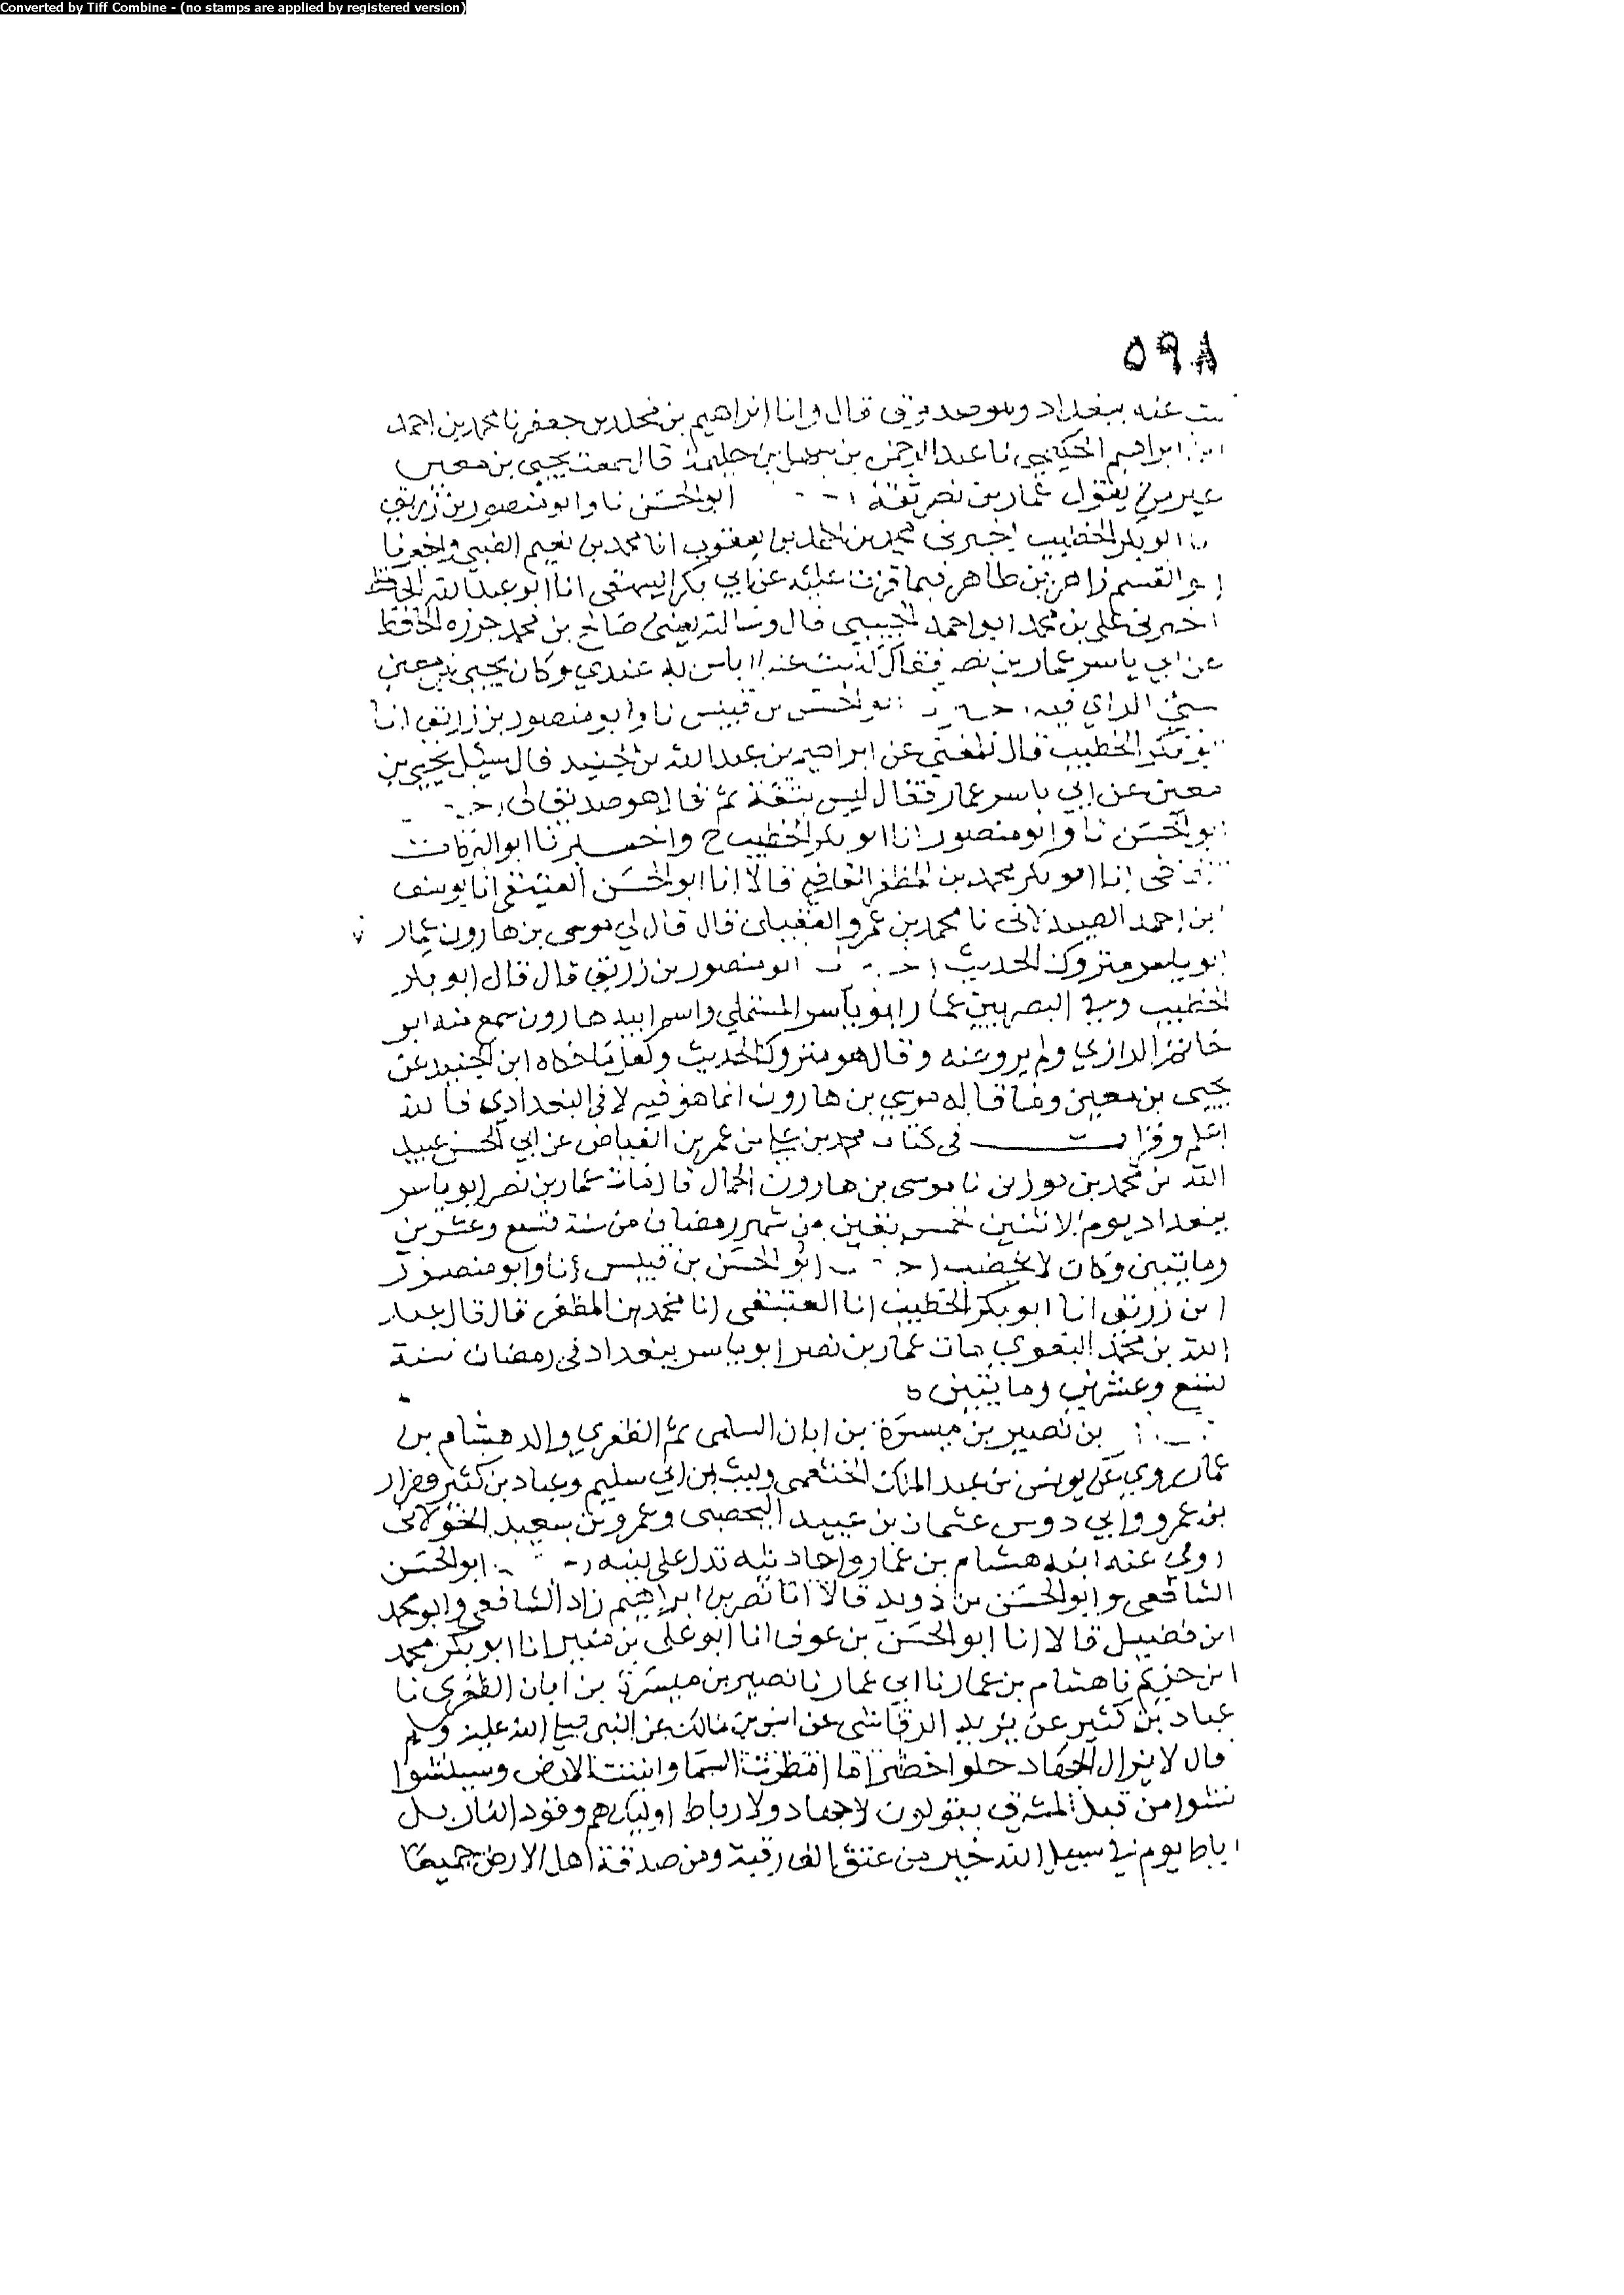 Converted by Tiff Combine - (no stamps are applied by registered version)
٥٩٨
عنه ببغداد وهو صدوق قال وانا ابراهيم بن مخلد بن جعفر نا محمد بن احمد
ابن ابراهيم الحكيمي نا عبد الرحمن بن سهل بن حليمة قال سمعت يحيى بن معين
غير مرة يقول عمار بن نصر ثقة ابو الحسن نا وابو منصور بن زريق
ابو بكر الخطيب اخبرني محمد بن احمد بن يعقوب انا محمد بن نعيم الضبي واخبرنا
ابو القسم زاهر بن طاهر فيما قرئت عليه عن ابي بكر البيهقي انا ابو عبد الله الحافظ
اخبرني علي بن محمد ابو احمد الحبيبي قال وسالته يعني صالح بن محمد جزره الحافظ
عن ابي ياسر عمار بن نصر فقال كتبت عنه لا باس به عندي وكان يحيى بن معين
سيئ الراي فيه ابو الحسن بن قبيس نا وابو منصور بن زريق انا
ابو بكر الخطيب قال بلغني عن ابراهيم بن عبد الله بن الجنيد قال سئل يحيى بن
معين عن ابي ياسر عمار فقال ليس بثقة ثم قال هو صديق لي
ابو الحسن نا وابو منصور انا ابو بكر الخطيب ح واخبرنا ابو البركات
انا ابو بكر محمد بن المظفر القاضي قالا انا ابو الحسن العتيقي انا يوسف
ابن احمد الصيدلاني نا محمد بن عمرو العقيلي قال قال لي موسى بن هارون عمار
ابو ياسر متروك الحديث ابو منصور بن زريق قال قال ابو بكر
الخطيب وفي البصريين عمار ابو ياسر المستملي واسم ابيه هارون سمع منه ابو
حاتم الرازي ولم يرو عنه وقال هو متروك الحديث ولعل ما حكاه ابن الجنيد عن
يحيى بن معين وما قاله موسى بن هارون انما هو فيه لا في البغدادي فالله
اعلم وقرات في كتاب محمد بن علي بن عمر بن الفياض عن ابي الحسن عبيد
الله بن محمد بن نا موسى بن هارون الحمال قال مات عمار بن نصر ابو ياسر
ببغداد يوم الاثنين لخمس بقين من شهر رمضان من سنة تسع وعشرين
ومايتين وكان لا يخضب ابو الحسن بن قبيس نا وابو منصور
ابن زريق انا ابو بكر الخطيب انا العتيقي انا محمد بن المظفر قال قال عبد
الله بن محمد البغوي مات عمار بن نصر ابو ياسر ببغداد في رمضان سنة
تسع وعشرين ومايتين ه
بن نصير بن ميسرة بن ابان السلمي ثم الظفري والد هشام بن
عمار روى عن يونس بن عبد الملك الخثعمي وليث بن ابي سليم وعباد بن كثير وضرار
بن عمرو وابي دوس عثمان بن عبيد اليحصبي وعمرو بن سعيد الخولاني
روى عنه ابنه هشام بن عمار واحاديثه تدل على لينه ابو الحسن
الشافعي وابو الحسن بن ذويد قالا انا نصر بن ابراهيم زاد الشافعي وابو محمد
ابن فضيل قالا انا ابو الحسن بن عوف انا ابو علي بن منير انا ابو بكر محمد
ابن خريم نا هشام بن عمار نا ابي عمار نا نصير بن ميسرة بن ابان الظفري نا
عباد بن كثير عن يزيد الرقاشي عن انس بن مالك عن النبي صلى الله عليه وسلم
قال لا يزال الجهاد حلوا اخضرا ما امطرت السما وانبتت الارض وسينشوا
نشوا من قبل المشرق يقولون لا جهاد ولا رباط اوليك هم وقود النار بل
رباط يوم في سبيل الله خير من عتق الف رقبة ومن صدقة اهل الارض جميعا